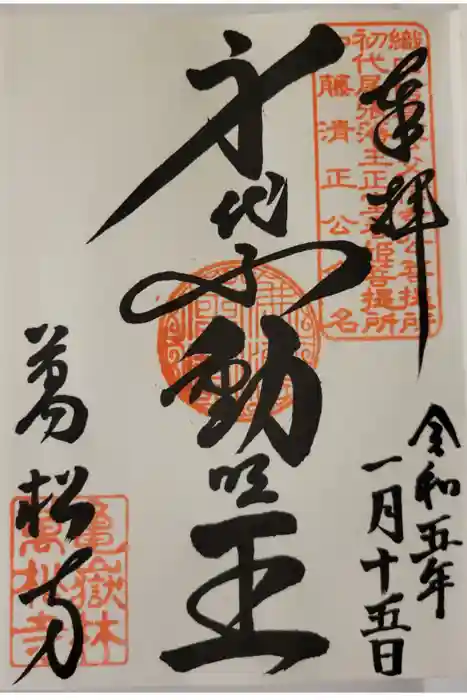 奉拝
令和五年
一月十五日
初代尾張藩主正室春姫菩提所
加藤清正公命名
身代不動明王
萬松寺
龜嶽林
萬松寺